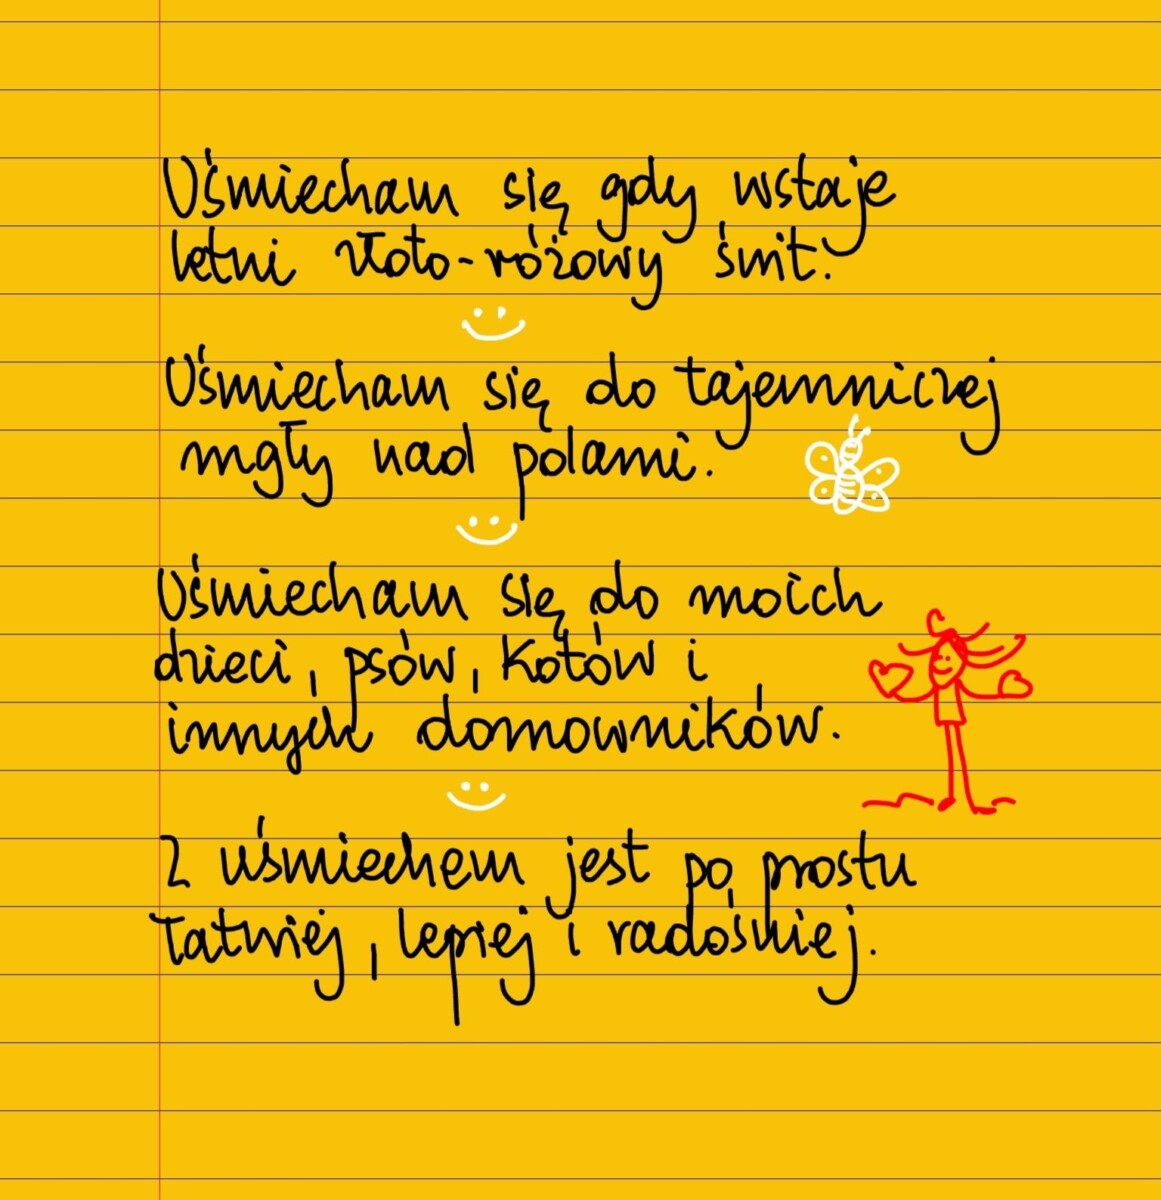 Uśmiecham się gdy wstaje
letni złoto-różowy świt.
Uśmiecham się do tajemniczej
mgły nad polami.
Uśmiecham się do moich
dzieci, psów, kotów i
innych domowników.
Z uśmiechem jest po prostu
łatwiej, lepiej i radośniej.